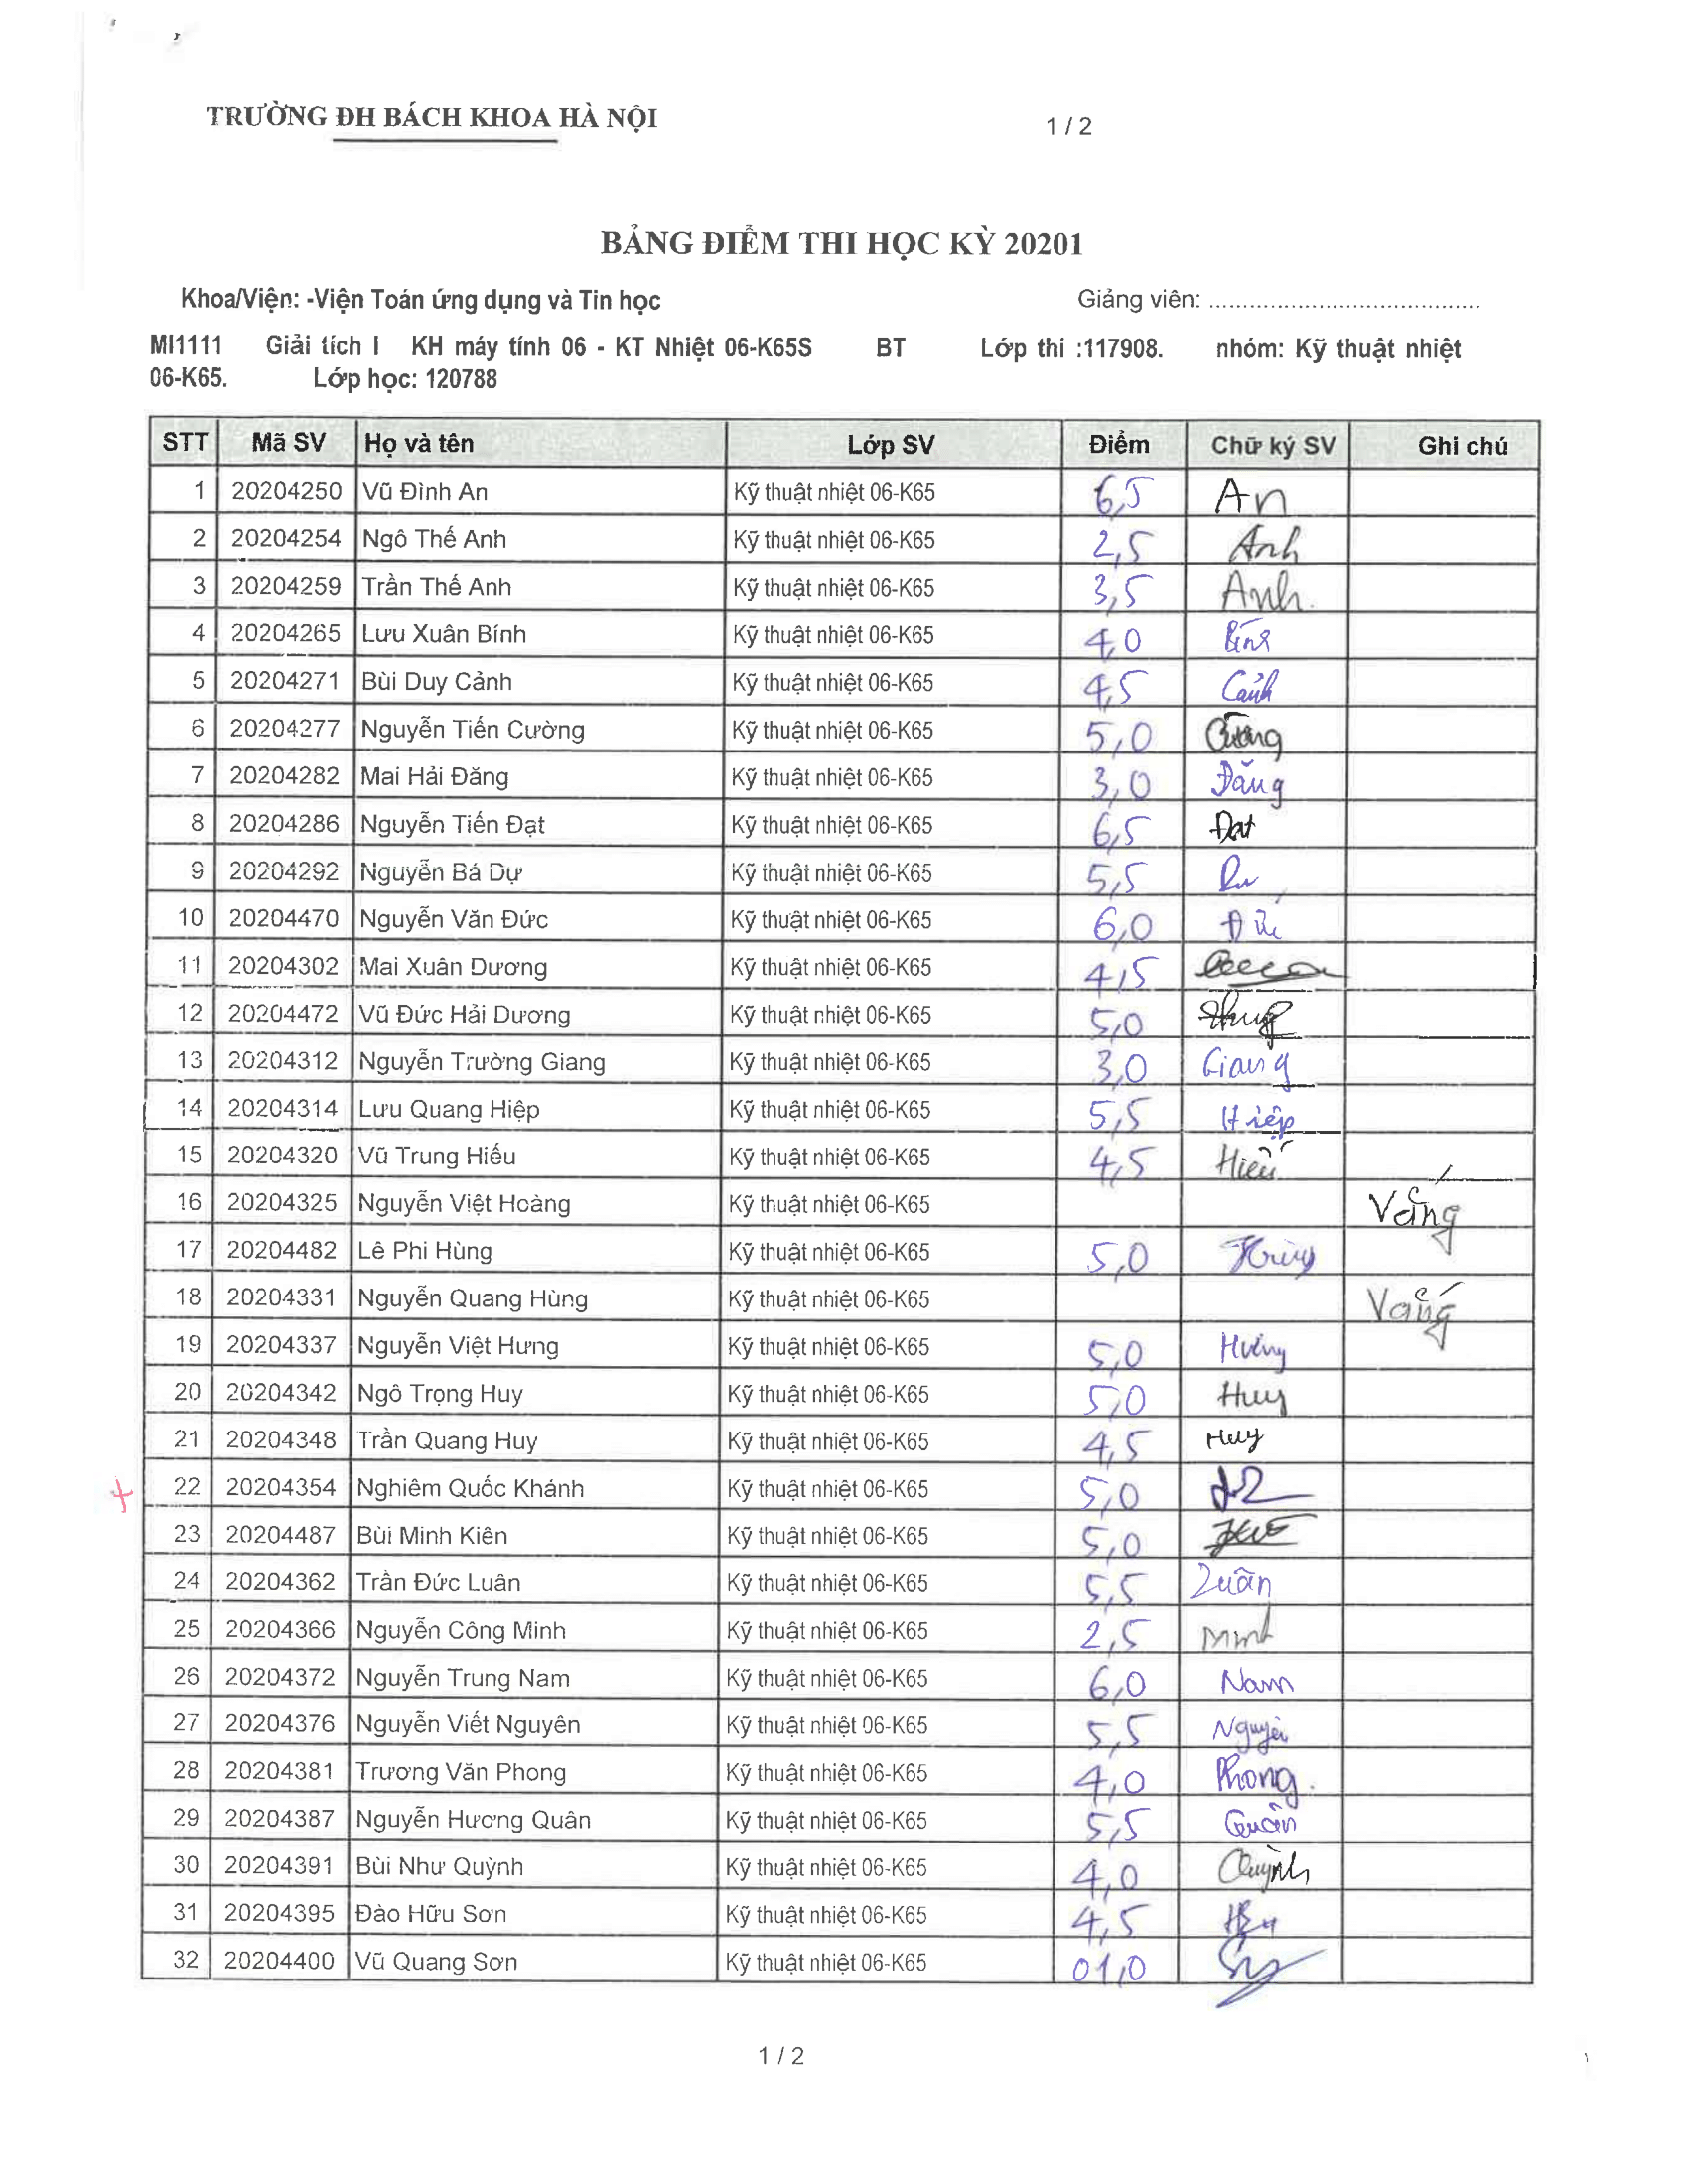 TRƯỜNG ĐH BÁCH KHOA HÀ NỘI 1 / 2
BẢNG ĐIỂM THI HỌC KỲ 20201
Khoa/Viện: -Viện Toán ứng dụng và Tin học Giảng viên: ........................................
MI1111 Giải tích I KH máy tính 06 - KT Nhiệt 06-K65S BT Lớp thi :117908. nhóm: Kỹ thuật nhiệt
06-K65. Lớp học: 120788
STT Mã SV Họ và tên Lớp SV Điểm Chữ ký SV Ghi chú
1 20204250 Vũ Đình An Kỹ thuật nhiệt 06-K65 6,5 An
2 20204254 Ngô Thế Anh Kỹ thuật nhiệt 06-K65 2,5 Anh
3 20204259 Trần Thế Anh Kỹ thuật nhiệt 06-K65 3,5 Anh
4 20204265 Lưu Xuân Bính Kỹ thuật nhiệt 06-K65 4,0
5 20204271 Bùi Duy Cảnh Kỹ thuật nhiệt 06-K65 4,5 Cảnh
6 20204277 Nguyễn Tiến Cường Kỹ thuật nhiệt 06-K65 5,0 Cường
7 20204282 Mai Hải Đăng Kỹ thuật nhiệt 06-K65 3,0 Đăng
8 20204286 Nguyễn Tiến Đạt Kỹ thuật nhiệt 06-K65 6,5 Đạt
9 20204292 Nguyễn Bá Dự Kỹ thuật nhiệt 06-K65 5,5
10 20204470 Nguyễn Văn Đức Kỹ thuật nhiệt 06-K65 6,0 Đức
11 20204302 Mai Xuân Dương Kỹ thuật nhiệt 06-K65 4,5
12 20204472 Vũ Đức Hải Dương Kỹ thuật nhiệt 06-K65 5,0
13 20204312 Nguyễn Trường Giang Kỹ thuật nhiệt 06-K65 3,0 Giang
14 20204314 Lưu Quang Hiệp Kỹ thuật nhiệt 06-K65 5,5 Hiệp
15 20204320 Vũ Trung Hiếu Kỹ thuật nhiệt 06-K65 4,5 Hiếu
16 20204325 Nguyễn Việt Hoàng Kỹ thuật nhiệt 06-K65 Vắng
17 20204482 Lê Phi Hùng Kỹ thuật nhiệt 06-K65 5,0 Hùng
18 20204331 Nguyễn Quang Hùng Kỹ thuật nhiệt 06-K65 Vắng
19 20204337 Nguyễn Việt Hưng Kỹ thuật nhiệt 06-K65 5,0 Hưng
20 20204342 Ngô Trọng Huy Kỹ thuật nhiệt 06-K65 5,0 Huy
21 20204348 Trần Quang Huy Kỹ thuật nhiệt 06-K65 4,5 Huy
22 20204354 Nghiêm Quốc Khánh Kỹ thuật nhiệt 06-K65 5,0
23 20204487 Bùi Minh Kiên Kỹ thuật nhiệt 06-K65 5,0
24 20204362 Trần Đức Luân Kỹ thuật nhiệt 06-K65 5,5 Luân
25 20204366 Nguyễn Công Minh Kỹ thuật nhiệt 06-K65 2,5 Minh
26 20204372 Nguyễn Trung Nam Kỹ thuật nhiệt 06-K65 6,0 Nam
27 20204376 Nguyễn Viết Nguyên Kỹ thuật nhiệt 06-K65 5,5 Nguyên
28 20204381 Trương Văn Phong Kỹ thuật nhiệt 06-K65 4,0 Phong
29 20204387 Nguyễn Hương Quân Kỹ thuật nhiệt 06-K65 5,5 Quân
30 20204391 Bùi Như Quỳnh Kỹ thuật nhiệt 06-K65 4,0 Quỳnh
31 20204395 Đào Hữu Sơn Kỹ thuật nhiệt 06-K65 4,5
32 20204400 Vũ Quang Sơn Kỹ thuật nhiệt 06-K65 01,0
1 / 2